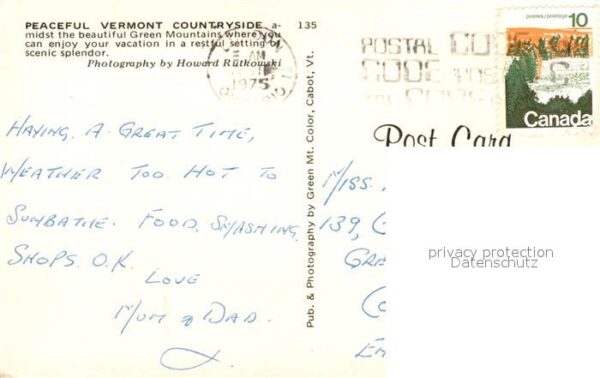 PEACEFUL VERMONT COUNTRYSIDE a-
midst the beautiful Green Mountains where you
can enjoy your vacation in a restful setting of
scenic splendor.
Photography by Howard Rutkowski
135
AM
1975
POSTAL CODE
CODE POSTAL
postes/postage 10
Canada
Post Card
HAVING A GREAT TIME,
WEATHER TOO HOT TO
SUNBATHE. FOOD, SMASHING,
SHOPS. O.K.
LOVE
MUM & DAD.
Pub. & Photography by Green Mt. Color, Cabot, Vt.
MISS.
139,
privacy protection
Datenschutz